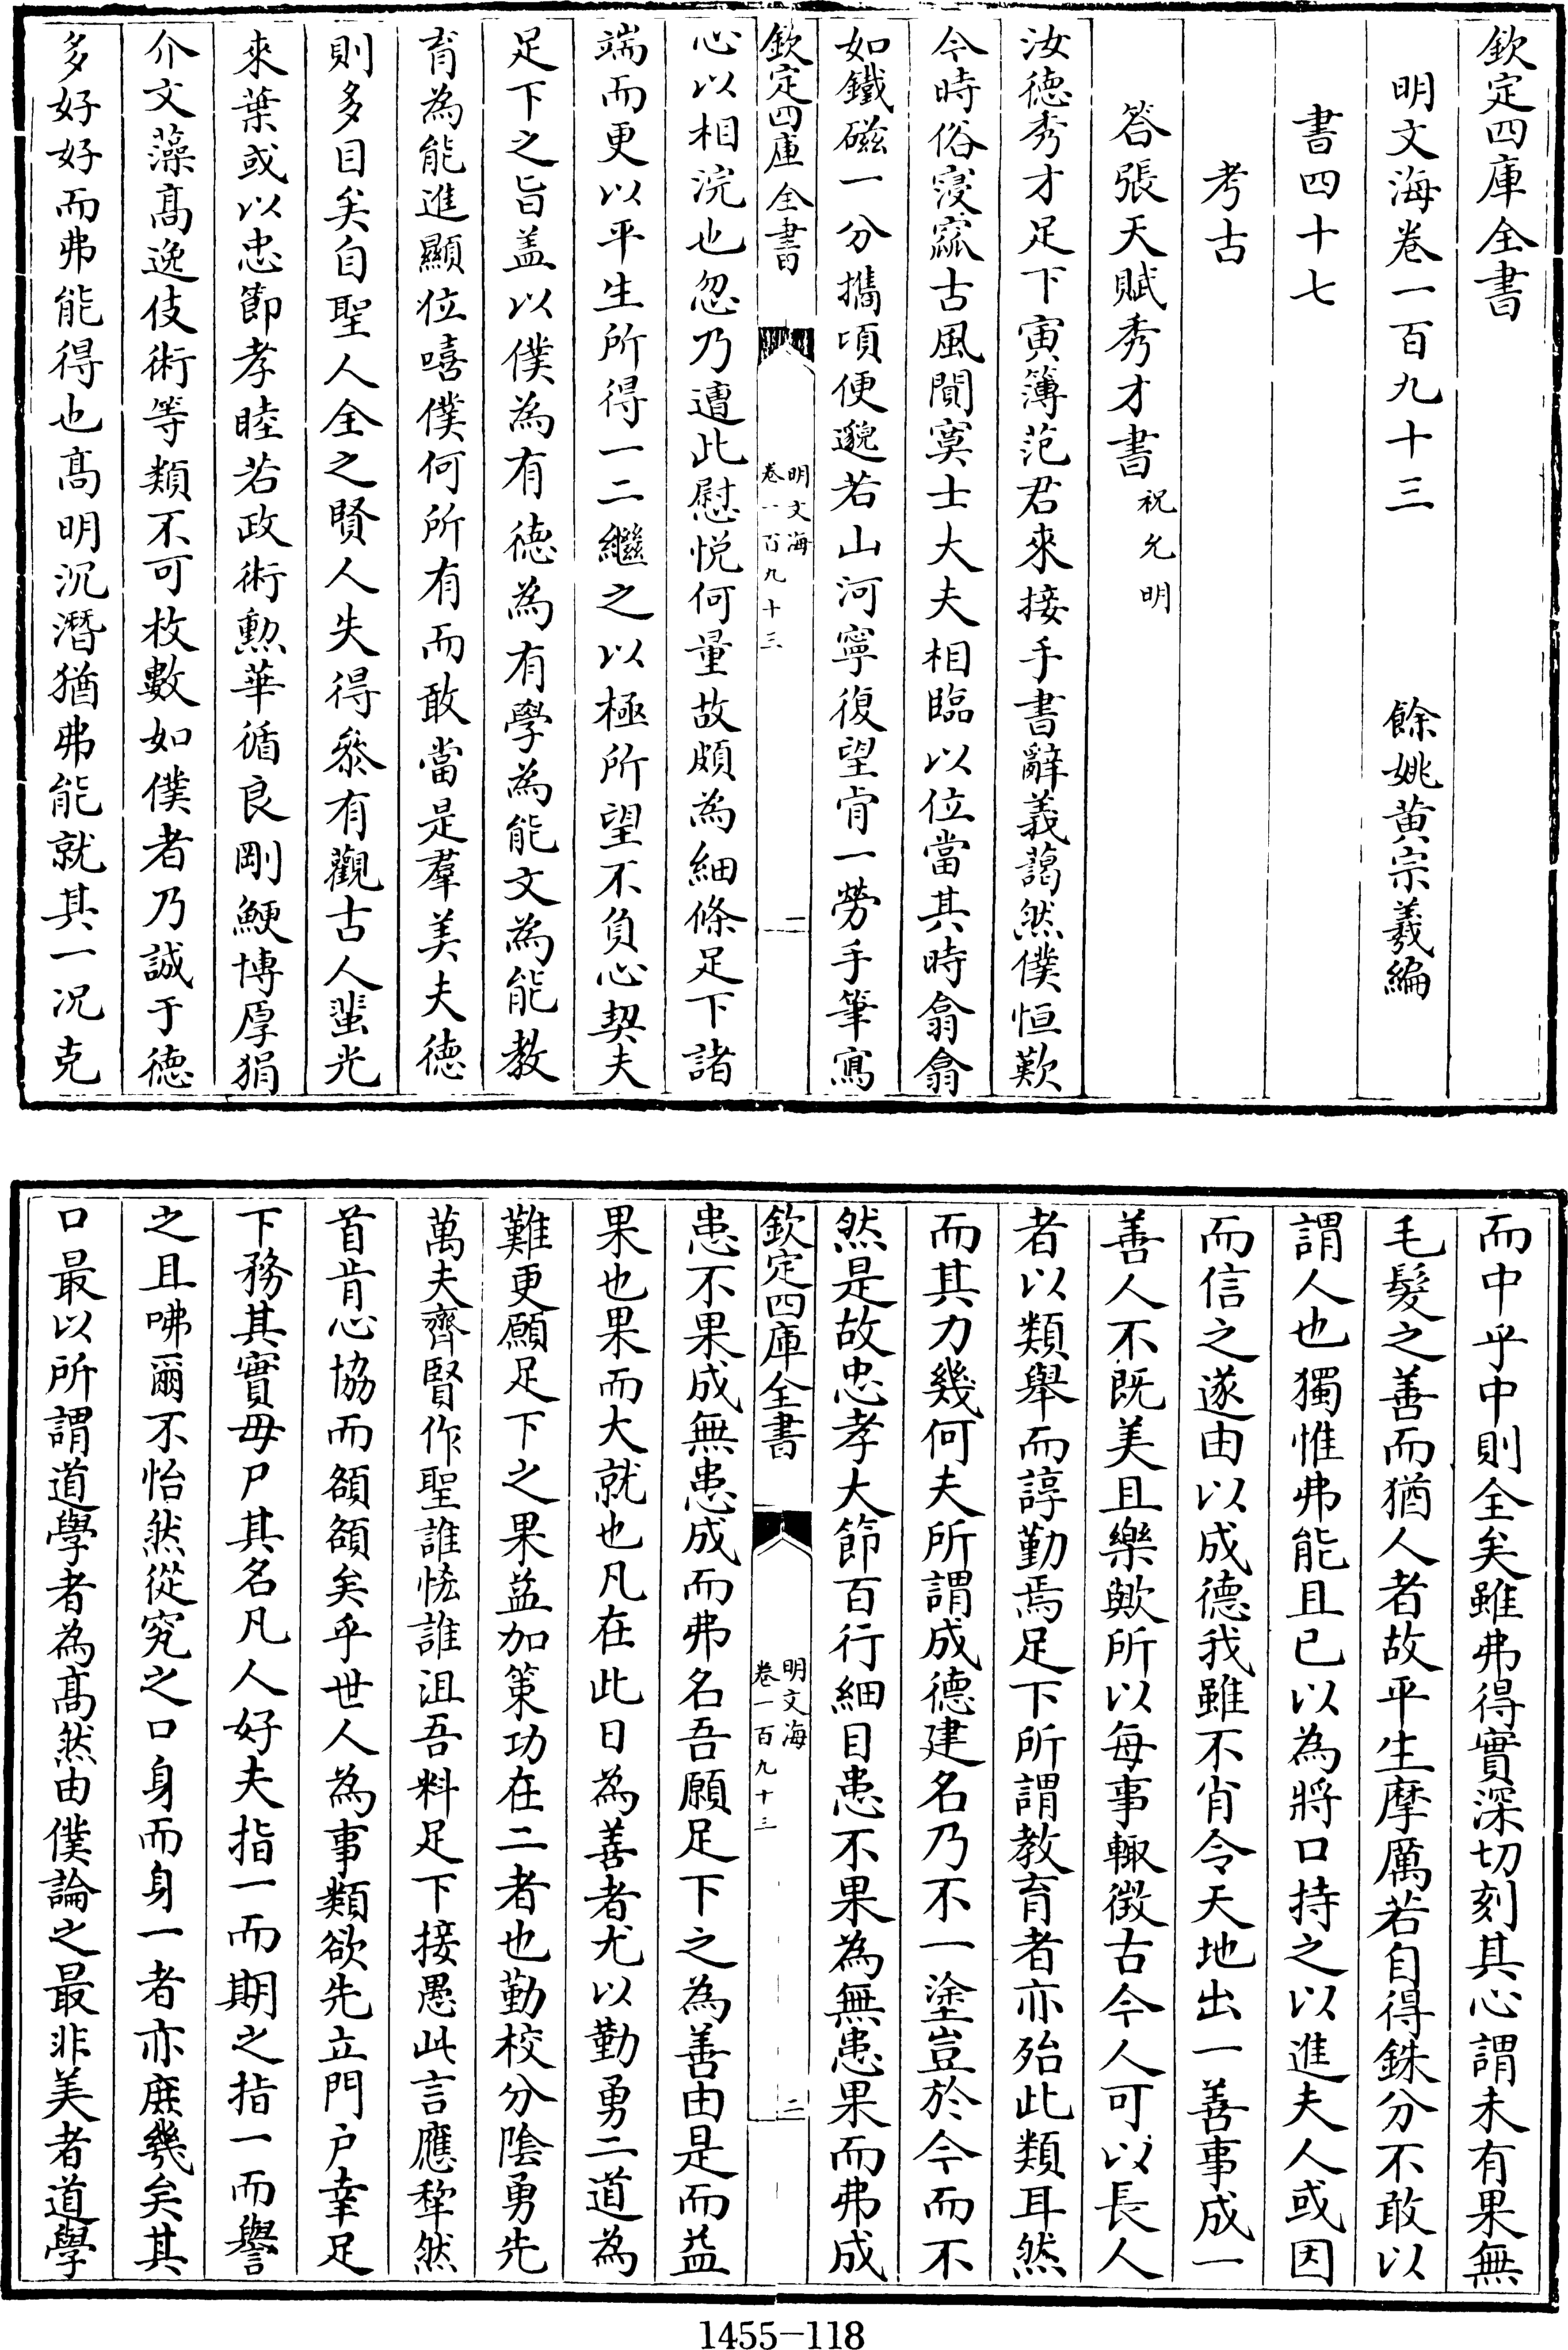 欽定四庫全書
明文海卷一百九十三　餘姚黄宗羲編
書四十七
考古
答張天賦秀才書祝允明
汝德秀才足下寅簿范君來接手書辭義藹然僕恒歎
今時俗寖窳古風閴寞士大夫相臨以位當其時翕翕
如鐵磁一分攜頃便邈若山河寧復望肯一勞手筆寫
欽定四庫全書
明文海
卷一百九十三
一
心以相浣也忽乃遭此慰悦何量故頗為細條足下諸
端而更以平生所得一二繼之以極所望不負心契夫
足下之旨盖以僕為有徳為有學為能文為能教
育為能進顯位嘻僕何所有而敢當是羣美夫徳
則多目矣自聖人全之賢人失得叅有觀古人蜚光
來葉或以忠節孝睦若政術勲華循良剛鯁博厚狷
介文藻髙逸伎術等類不可枚數如僕者乃誠于德
多好好而弗能得也髙明沉潛猶弗能就其一况克
而中乎中則全矣雖弗得實深切刻其心謂未有果無
毛髮之善而猶人者故平生摩厲若自得銖分不敢以
謂人也獨惟弗能且已以為將口持之以進夫人或因
而信之遂由以成德我雖不肖令天地出一善事成一
善人不既美且樂歟所以每事輙徴古今人可以長人
者以類舉而諄勤焉足下所謂教育者亦殆此類耳然
而其力幾何夫所謂成德建名乃不一塗豈於今而不
然是故忠孝大節百行細目患不果為無患果而弗成
欽定四庫全書
明文海
卷一百九十三
二
患不果成無患成而弗名吾願足下之為善由是而益
果也果而大就也凡在此日為善者尤以勤勇二道為
難更願足下之果益加策功在二者也勤校分陰勇先
萬夫齊賢作聖誰恡誰沮吾料足下接愚此言應犂然
首肯心協而額額矣乎世人為事類欲先立門户幸足
下務其實毋尸其名凡人好夫指一而期之指一而譽
之且咈爾不怡然從究之口身而身一者亦庶幾矣其
口最以所謂道學者為髙然由僕論之最非美者道學
1455-118